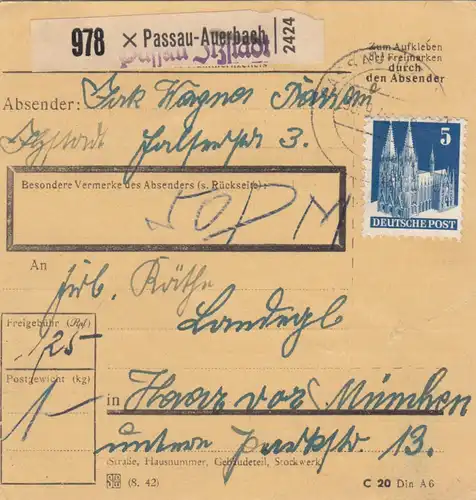 978 × Passau-Auerbach 2424
Passau Ilzstadt
Zum Aufkleben
der Freimarken
durch
den Absender
Absender: Wagner Passau
Ilzstadt 3.
Besondere Vermerke des Absenders (s. Rückseite):
50 Pf
5
DEUTSCHE POST
An
Frl. Käthe
Landegl
Freigebühr (Rpf)
125-
Postgewicht (kg)
1-
in Haar vor München
untere Parkstr. 13.
(Straße, Hausnummer, Gebäudeteil, Stockwerk)
(8. 42)
C 20 Din A6